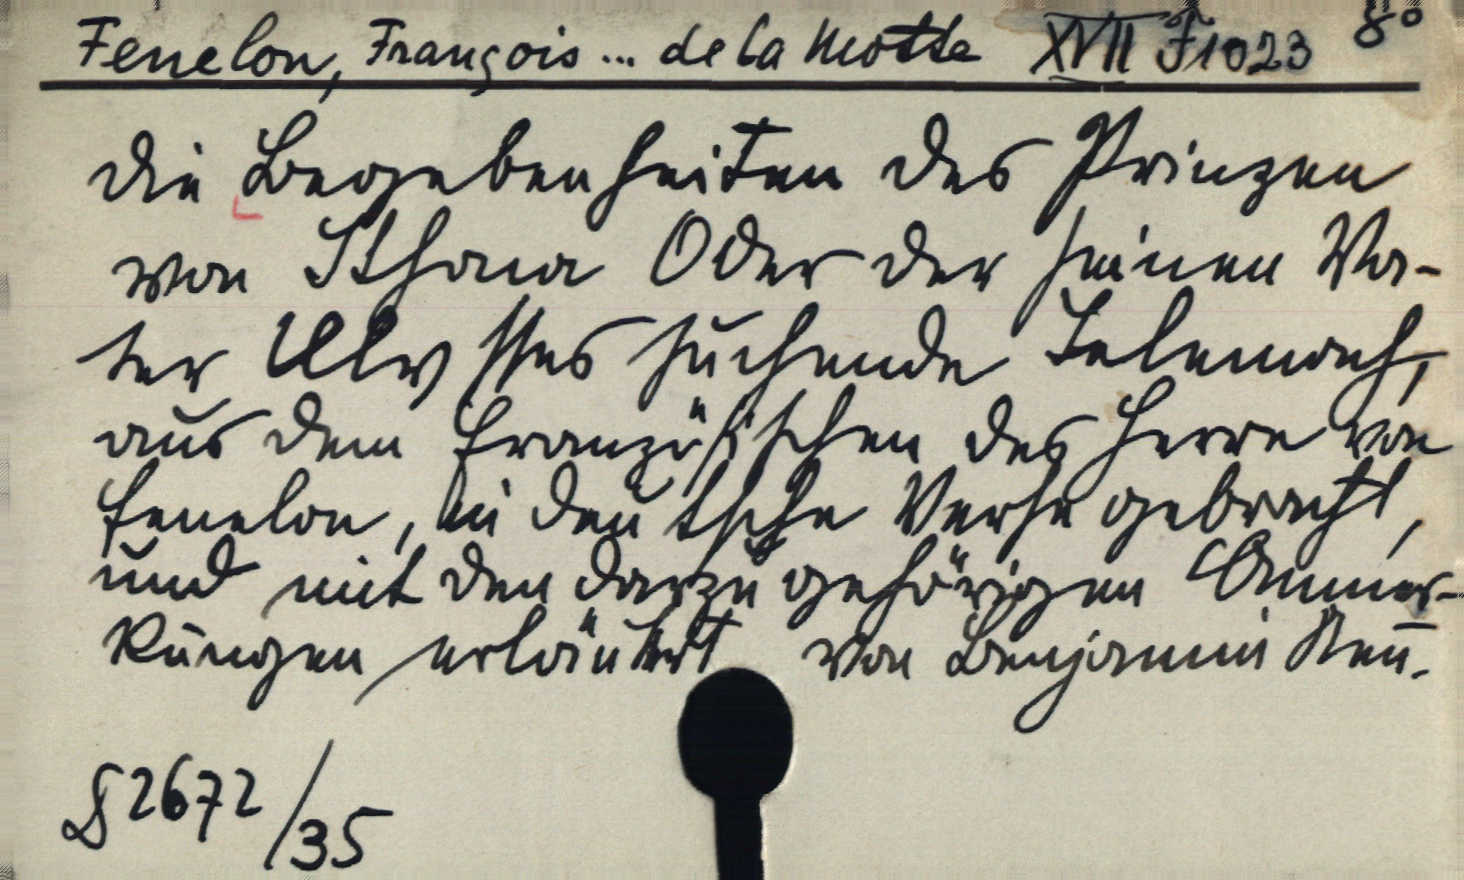 Fenelon, François... de la Motte XVII F 1023 8°
Die Begebenheiten des Prinzen
von Ithaca Oder der seinen Va-
ter Ulysses suchende Telemach,
aus dem Französischen des Herrn von
Fenelon, in deutsche Verse gebracht,
und mit den darzu gehörigen Anmer-
kungen erläutert von Benjamin Neu.
2672/35